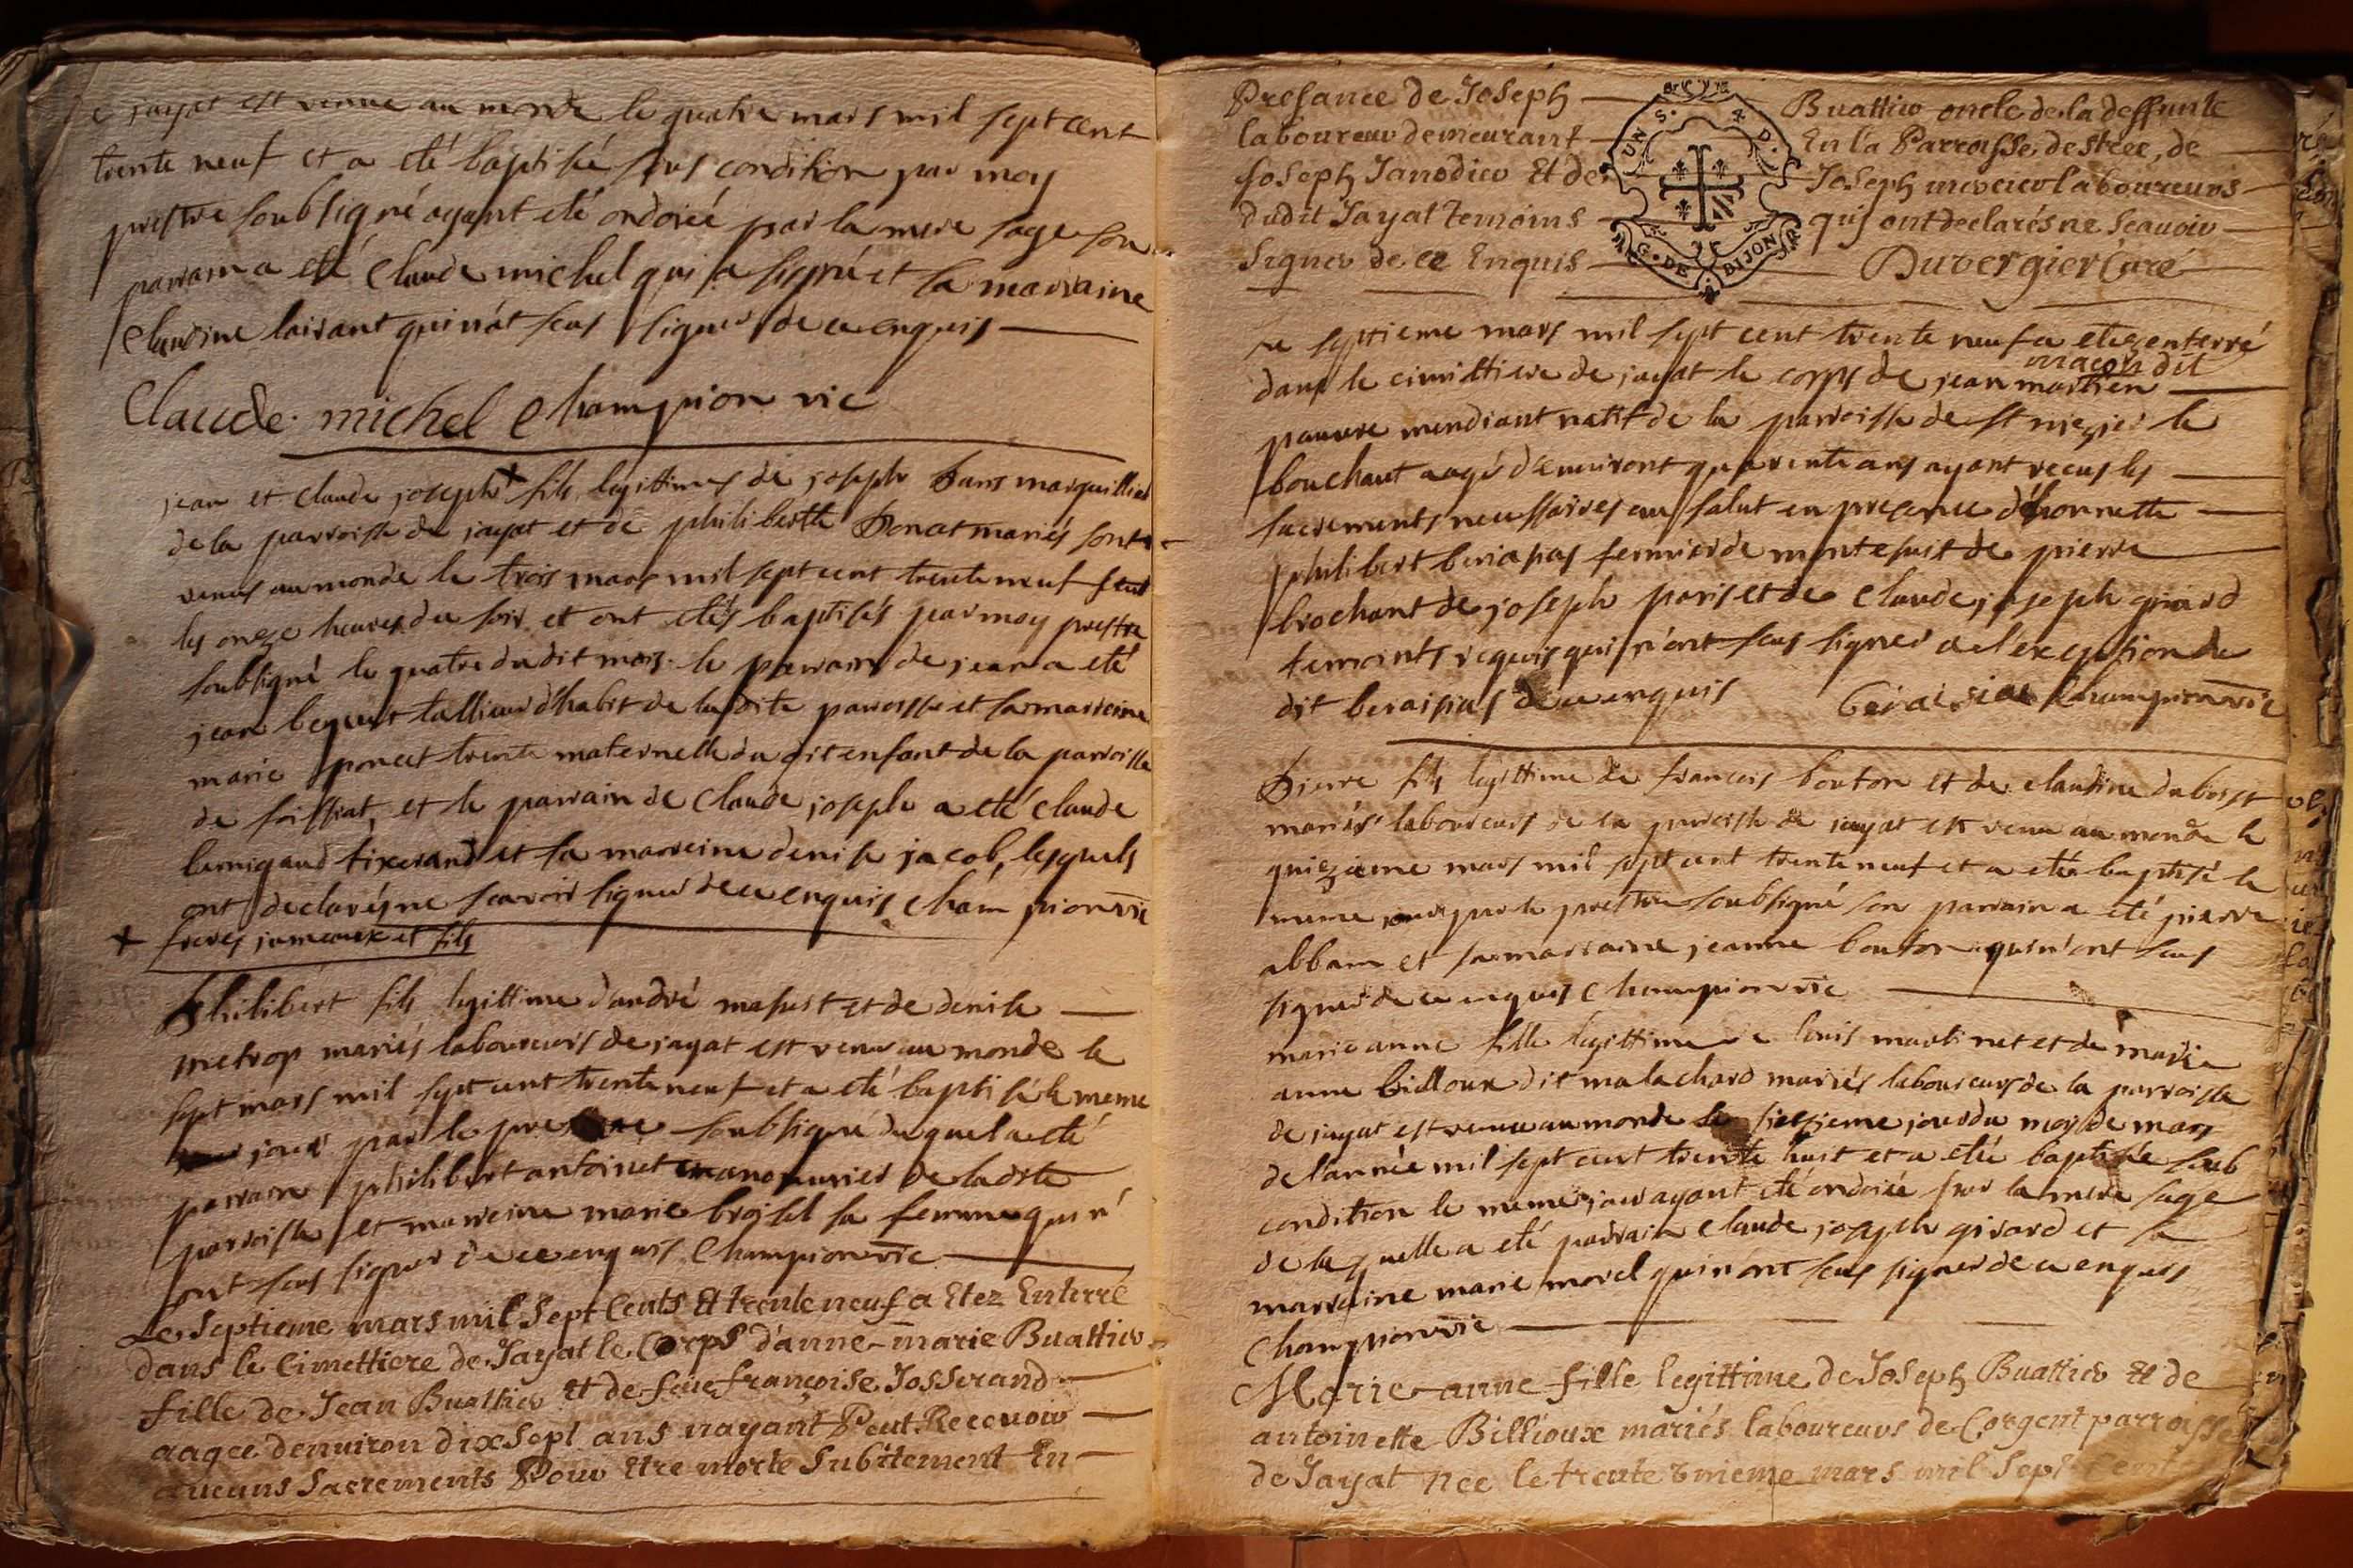 jayat est venue au monde le quatre mars mil sept cent
trente neuf et a eté baptisée sous condition par moy
prestre soubsigné ayant eté ondoiée par la mere sage son
parrain a eté Claude michel qui a signé et la marraine
Claudine laisant qui n'at seus signer de ce enquis
Claude michel Championvic
jean et claude joseph + fils legittimes de joseph marguillier
de la parroisse de jayat et de philiberte Ponat mariés sont
venus au monde le trois mars mil sept cent trente neuf
les onze heures du soir et ont etés baptisés par moy prestre
soubsigné le quatre dudit mois. le parrain de jean a eté
jean tallieur d'habit de laditte parroisse et sa marreine
marie poncet tente maternelle du dit enfant de la parroisse
de foissiat, et le parrain de Claude joseph a eté Claude
tixerand et sa marreine denise jacob, lesquels
ont declaré ne scavoir signer de ce enquis Championvic
+ freres jumeaux et fils
Philibert fils legittime d'andré et de denise
metrop mariés laboureurs de jayat est venu au monde le
sept mars mil sept cent trente neuf et a eté baptisé le meme
jour par le prestre soubsigné duquel a eté
parrain philibert antoinet manouvrier de ladite
parroisse et marreine marie sa femme qui n'
ont seus signer de ce enquis Championvic
Le Septieme mars mil Sept Cents Et trente neuf a Etez Enterré
dans le Cimettiere de Jayat le Corps d'anne-marie Buattier
fille de Jean Buattier Et de feüe françoise Josserand
aagee denuiron dix Sept ans nayant Peut Receuoir
aucuns Sacrements Pour Etre morte Subitement En
Presance de Joseph Buattier oncle de la deffunte
laboureur demeurant En la Parroisse de , de
Joseph Janodier Et de Joseph mercier laboureurs
dudit Jayat temoins qui ont declarés ne Scauoir
Signer de ce Enquis Duvergier Curé
UN S. 4 D.
G. DE DIJON
ce septieme mars mil sept cent trente neuf a etez enterré
dans le cimittiere de jayat le corps de jean macon dit
pauvre mendiant natif de la parroisse de st le
bouchaut aagé d'environt quarente ans ayant recus les
sacrements necessaires au salut en presence d'honnette
philibert fermier de de pierre
brochant de joseph paris et de Claude joseph girard
temoints requis qui n'ont seus signer a l'exception du
dit de ce enquis Championvic
Pierre fils legittime de francois bouton et de claudine dubost
mariés laboureurs de la paroisse de jayat est venu au monde le
quiezieme mars mil sept cent trente neuf et a etée baptisé le
meme jour par le prestre soubsigné son parrain a eté pierre
abbam et sa marraine jeanne bouton qui n'ont seus
signer de ce enquis Championvic
marie anne fille legittime de louis martinet et de marie
anne billoux dit malachard mariés laboureurs de la parroisse
de jayat est venue au monde le jour du mois de mars
de l'année mil sept cent trente huit et a etée baptisée soub
condition le meme jour ayant eté ondoiée par la mere sage
de laquelle a eté parrain Claude joseph girard et la
marraine marie morel qui n'ont seus signer de ce enquis
Championvic
Marie-anne fille legittime de Joseph Buattier Et de
antoinette Billioux mariés laboureurs de Corgent parroisse
de Jayat née le trente Unieme mars mil Sept Cents